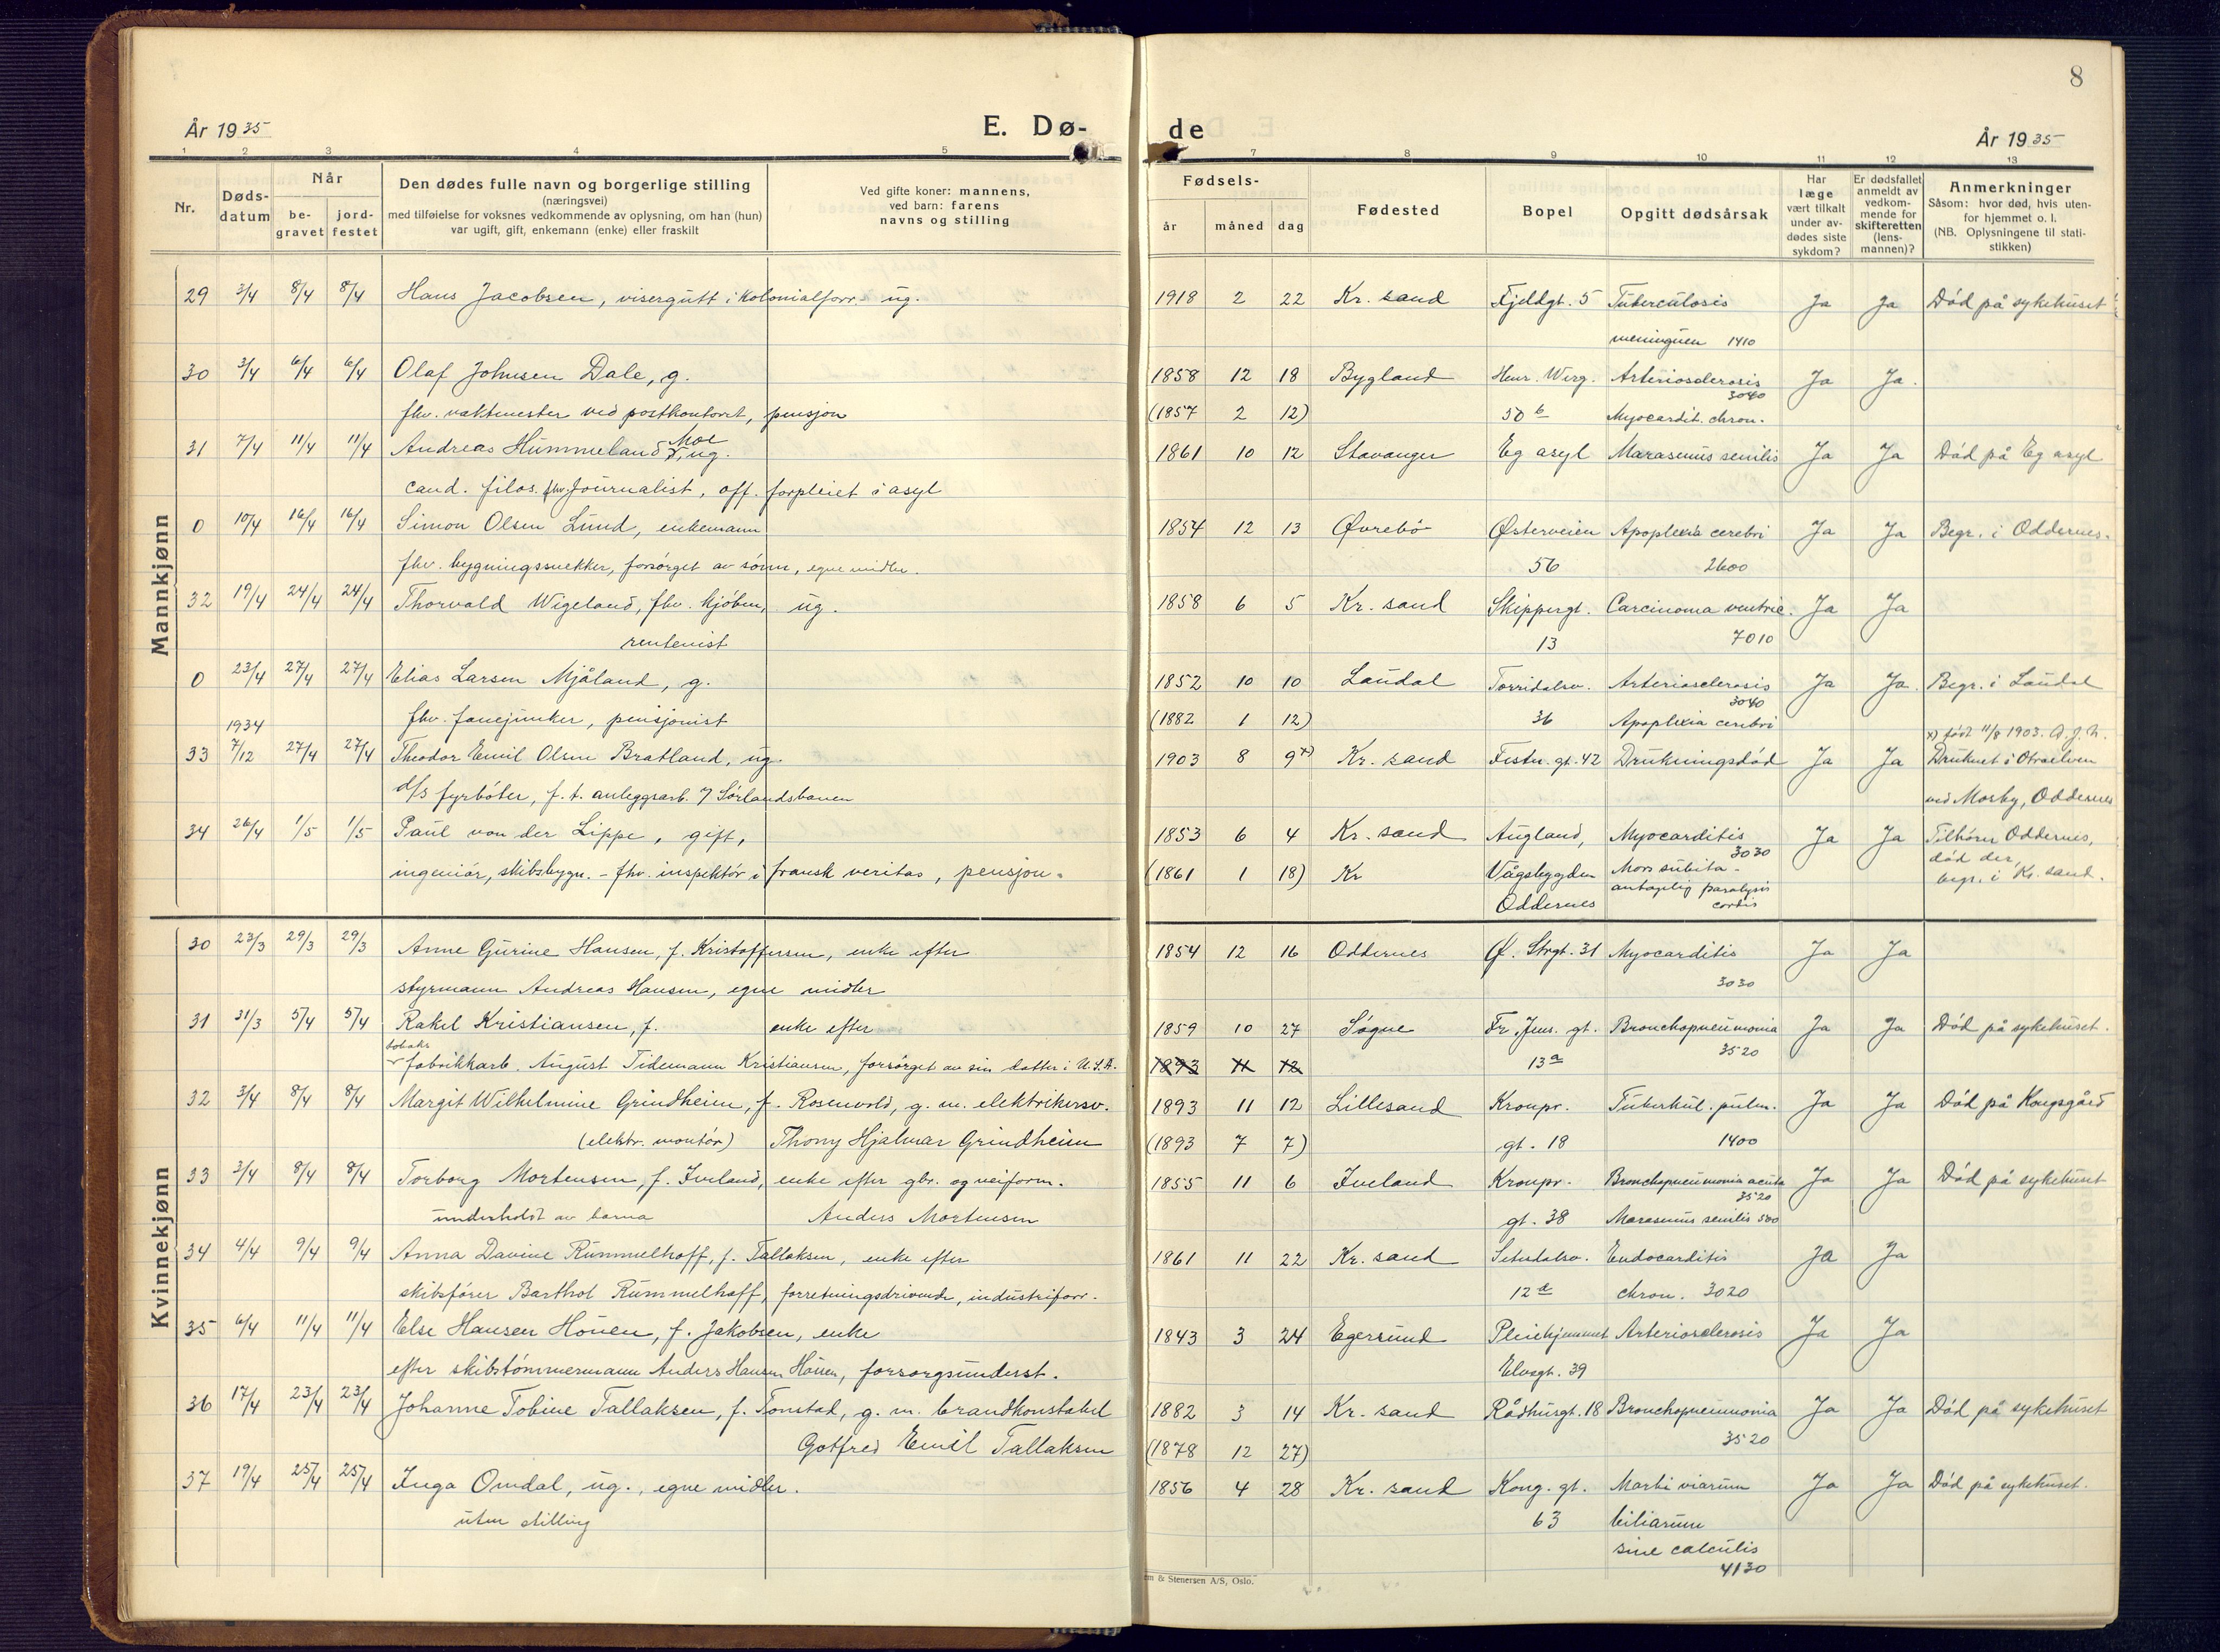 8
År 1935
E. Dø-
de
År 1935
1 2 3 4 5
7 8 9 10 11 12 13
Nr.
Døds-
datum
Når
be-
gravet
jord-
festet
Den dødes fulle navn og borgerlige stilling
(næringsvei)
med tilføielse for voksnes vedkommende av oplysning, om han (hun)
var ugift, gift, enkemann (enke) eller fraskilt
Ved gifte koner: mannens,
ved barn: farens
navns og stilling
Fødsels-
år måned dag
Fødested
Bopel
Opgitt dødsårsak
Har
læge
vært tilkalt
under av-
dødes siste
sykdom?
Er dødsfallet
anmeldt av
vedkom-
mende for
skifteretten
(lens-
mannen)?
Anmerkninger
Såsom: hvor død, hvis uten-
for hjemmet o. l.
(NB. Oplysningene til stati-
stikken)
Mannkjønn
29 3/4 8/4 8/4 Hans Jacobsen, visergutt i kolonialforr. ug. 1918 2 22 Kr. sand Fjeldgt. 5 Tuberculosis Ja Ja Død på sykehuset
1410
30 3/4 6/4 6/4 Olaf Johnsen Dale, g. 1858 12 18 Bygland Henr. Werg. Arteriosclerosis Ja Ja.
3040
fhv. vaktmester ved postkontoret, pensjon (1857 2 12) 50 b Myocardit. chron.
Moe
31 7/4 11/4 11/4 Andreas Hummeland, ug. 1861 10 12 Stavanger Eg asyl Marasmus senilis Ja Ja Død på Eg asyl
cand. filos. fhv. Journalist, off. forpleiet i asyl
0 10/4 16/4 16/4 Simon Olsen Lund, enkemann 1854 12 13 Øvrebø Østerveien Apoplexia cerebri Ja Ja Begr. i Oddernes.
fhv. bygningssnekker, forsørget av sønn, egne midler. 56 2600
32 19/4 24/4 24/4 Thorvald Wigeland, fhv. kjøbm, ug. 1858 6 5 Kr. sand Skippergt. Carcinoma ventric. Ja Ja
rentenist 13 7010
0 23/4 27/4 27/4 Elias Larsen Mjåland, g. 1852 10 10 Laudal Torridalsv. Arteriosclerosis Ja Ja. Begr. i Laudal
3040
fhv. fanejunker, pensjonist (1882 1 12) 36 Apoplexia cerebri
1934 x) født 11/8 1903.
33 7/12 27/4 27/4 Theodor Emil Olsen Bratland, ug. 1903 8 9x) Kr. sand Festn. gt. 42 Drukningsdød Ja Ja Druknet i Otraelven
d/s fyrbøter, f. t. anleggsarb. v/ Sørlandsbanen ved Mosby, Oddernes
34 26/4 1/5 1/5 Paul von der Lippe, gift, 1853 6 4 Kr. sand Augland, Myocarditis Ja Ja Tilhører Oddernes,
3030 død der,
ingeniør, skibsbygn. - fhv. inspektør i fransk veritas, pensjon. (1861 1 18) Kr Vågsbygden Mors subita - begr. i Kr. sand.
Oddernes antagelig paralysis
cordis
Kvinnekjønn
30 23/3 29/3 29/3 Anne Gurine Hansen, f. Kristoffersen, enke efter 1854 12 16 Oddernes Ø. Strgt. 31 Myocarditis Ja Ja
styrmann Andreas Hansen, egne midler 3030
31 31/3 5/4 5/4 Rakel Kristiansen, f. enke efter 1859 10 27 Søgne Fr. Jens. gt. Bronchopneumonia Ja Ja Død på sykehuset.
tobaks
fabrikkarb. August Tidemann Kristiansen, forsørget av sin datter i U.S.A. 1893 11 12 13a 3520
32 3/4 8/4 8/4 Margit Wilhelmine Grindheim, f. Rosenvold, g. m. elektrikersv. 1893 11 12 Lillesand Kronpr. Tuberkul. pulm. Ja Ja Død på Kongsgård
(elektr. montør) Thony Hjalmar Grindheim (1893 7 7) gt. 18 1400
33 3/4 8/4 8/4 Torborg Mortensen, f. Iveland, enke efter gbr. og veiform. 1855 11 6 Iveland Kronpr. Bronchopneumonia acuta Ja Ja Død på sykehuset
3520
underholdt av barna Anders Mortensen gt. 38 Marasmus senilis 500
34 4/4 9/4 9/4 Anna Davine Rummelhoff, f. Tallaksen, enke efter 1861 11 22 Kr. sand Setesdalsv. Endocarditis Ja Ja
skibsfører Barthol Rummelhoff, forretningsdrivende, industriforr. 12 a chron. 3020
35 6/4 11/4 11/4 Else Hansen Houen, f. Jakobsen, enke 1843 3 24 Egersund Pleiehjemmet Arteriosclerosis Ja Ja
efter skibstømmermann Anders Hansen Houen, forsorgsunderst. Elvegt. 39
36 17/4 23/4 23/4 Johanne Tobine Tallaksen, f. Tonstad, g. m. brandkonstabel 1882 3 14 Kr. sand Rådhusgt. 18 Bronchopneumonia Ja Ja Død på sykehuset
Gotfred Emil Tallaksen (1878 12 27) 3520
37 19/4 25/4 25/4 Inga Omdal, ug., egne midler. 1856 4 28 Kr. sand Kong. gt. Morbi viarum Ja Ja Død på sykehuset.
uten stilling 63 biliarum
sine calculis
4130
& Stenersen A/S, Oslo.